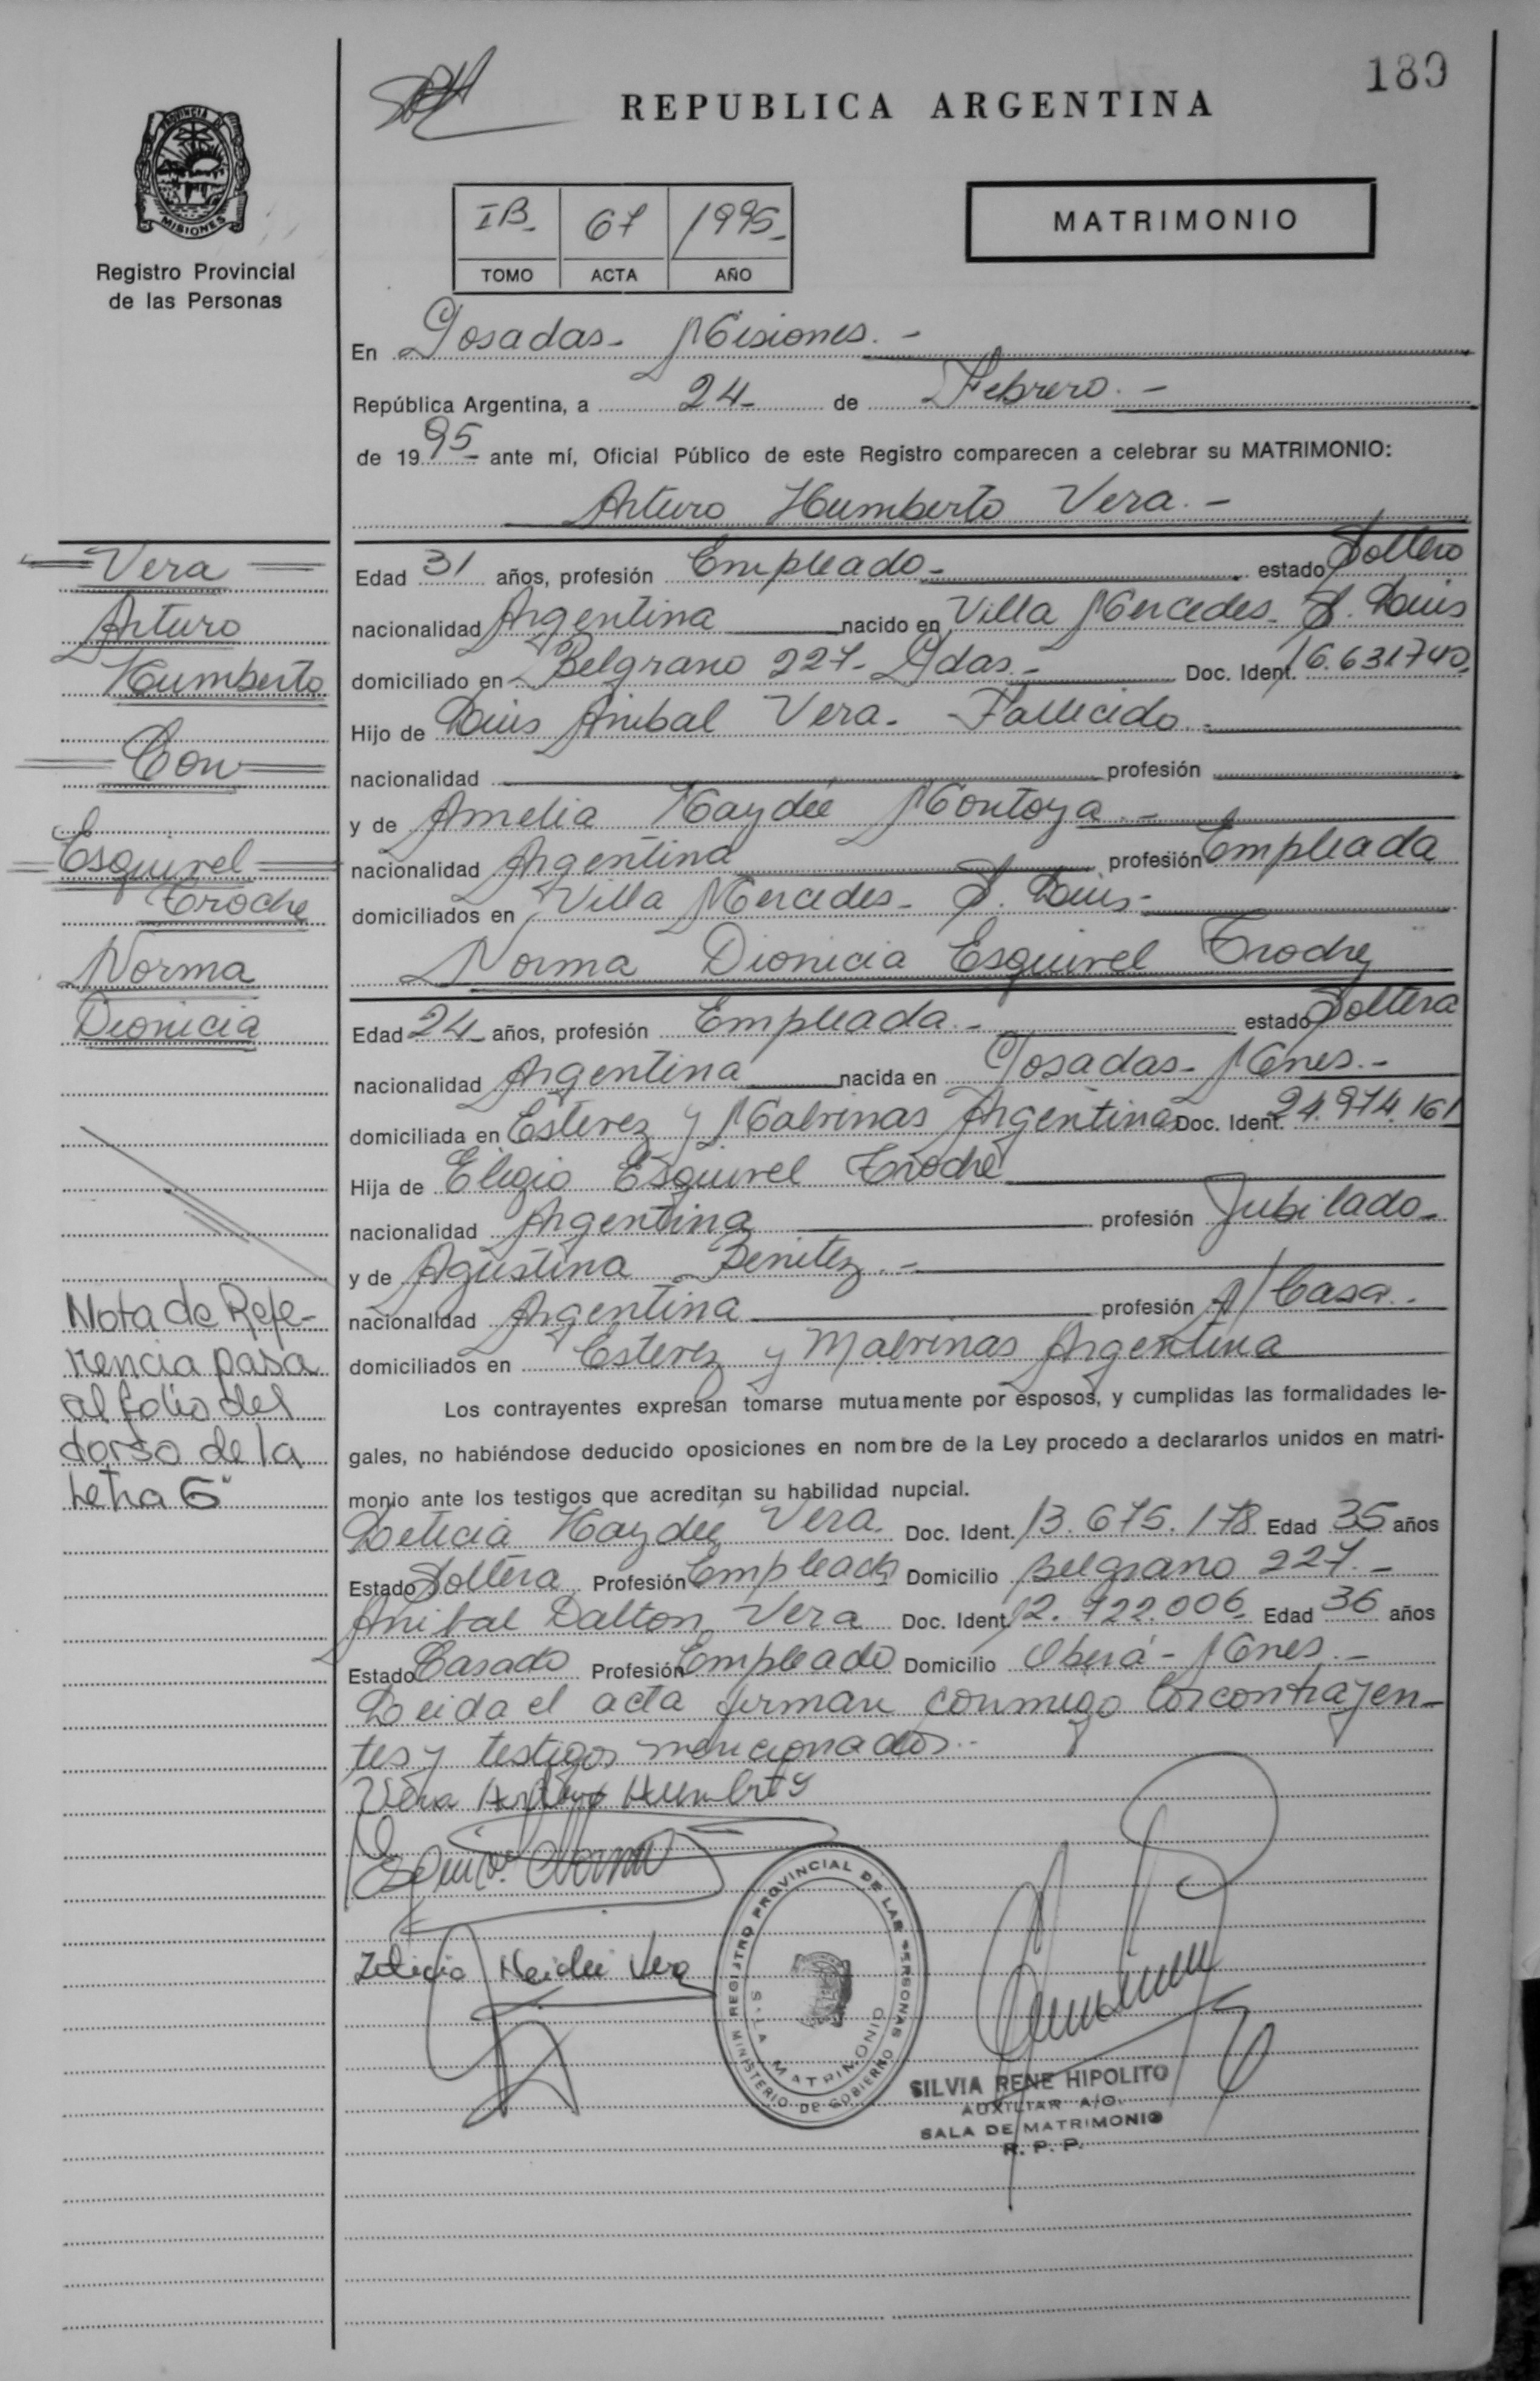 189
REPUBLICA ARGENTINA
PROVINCIA DE
MISIONES
Registro Provincial
de las Personas
IB- 67 1995-
TOMO ACTA AÑO
MATRIMONIO
En Posadas- Misiones.-
República Argentina, a 24- de Febrero.-
de 1995- ante mí, Oficial Público de este Registro comparecen a celebrar su MATRIMONIO:
Arturo Humberto Vera.-
Edad 31 años, profesión Empleado- estado Soltero
nacionalidad Argentina nacido en Villa Mercedes- S. Luis
domiciliado en Belgrano 227- Pdas.- Doc. Ident. 16.631740
Hijo de Luis Anibal Vera- Fallecido.-
nacionalidad profesión
y de Amelia Haydée Montoya.-
nacionalidad Argentina profesión Empleada
domiciliados en Villa Mercedes- S. Luis-
Norma Dionicia Esquivel Troche
Edad 24- años, profesión Empleada.- estado Soltera
nacionalidad Argentina nacida en Posadas- Mnes.-
domiciliada en Esterez y Malvinas Argentinas Doc. Ident. 24.974.161
Hija de Eligio Esquivel Troche
nacionalidad Argentina profesión Jubilado-
y de Agustina Benitez.-
nacionalidad Argentina profesión A/ Casa.
domiciliados en Esterez y Malvinas Argentina
Los contrayentes expresan tomarse mutuamente por esposos, y cumplidas las formalidades le-
gales, no habiéndose deducido oposiciones en nombre de la Ley procedo a declararlos unidos en matri-
monio ante los testigos que acreditan su habilidad nupcial.
Leticia Haydée Vera. Doc. Ident. 13.675.178 Edad 35 años
Estado Soltera Profesión Empleada Domicilio Belgrano 227.-
Anibal Dalton Vera Doc. Ident. 12.922.006 Edad 36 años
Estado Casado Profesión Empleado Domicilio Oberá- Mnes.-
Leida el acta firman conmigo los contrayen-
tes y testigos mencionados.-
Vera Arturo Humberto
Esquivel Norma
Leticia Heidee Vera
REGISTRO PROVINCIAL DE LAS PERSONAS
MINISTERIO DE GOBIERNO
SALA MATRIMONIO
SILVIA RENE HIPOLITO
AUXILIAR A/C.
SALA DE MATRIMONIO
R. P. P.
Vera
Arturo
Humberto
Con
Esquivel
Troche
Norma
Dionicia
Nota de Refe-
rencia pasa
al folio del
dorso de la
Letra G"